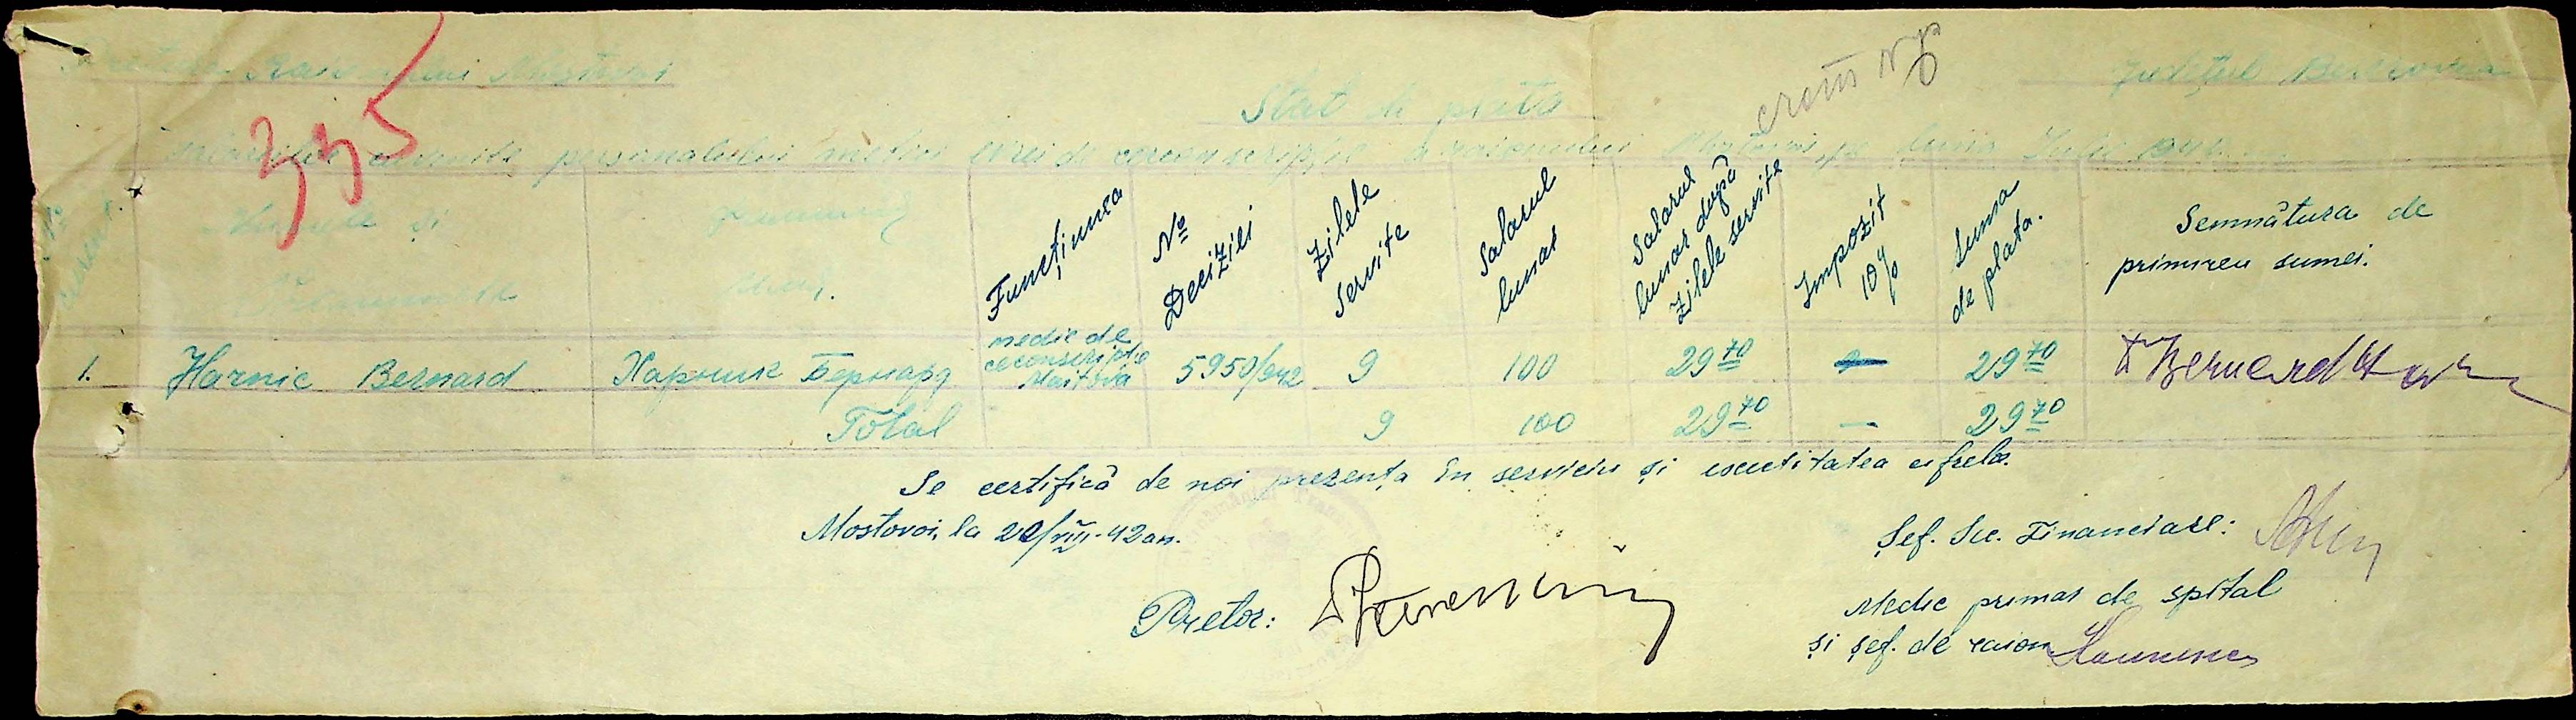 Raionului Mostovoi
Județul Berezovca
395
Stat de plata
personalului medici circumscripție a raionului Mostovoi pe luna Iulie 1942
Numele și
Functiunea
№ Deciziei
Zilele servite
Salarul lunar
Salarul lunar după zilele servite
Impozit 10%
Suma de plata.
Semnătura de primirea sumei.
1. Harnic Bernard Харник Бернард medic de 5950/942 9 100 29 70 29 70 Dr Bernard Harnic
Total 9 100 29 70 — 29 70
Se certifică de noi prezența în serviciu și exactitatea cifrelor.
Mostovoi, la 20/VIII-42 an.
Șef. Sec. Financiare:
Pretor:
Medic primar de spital
și șef. de raion